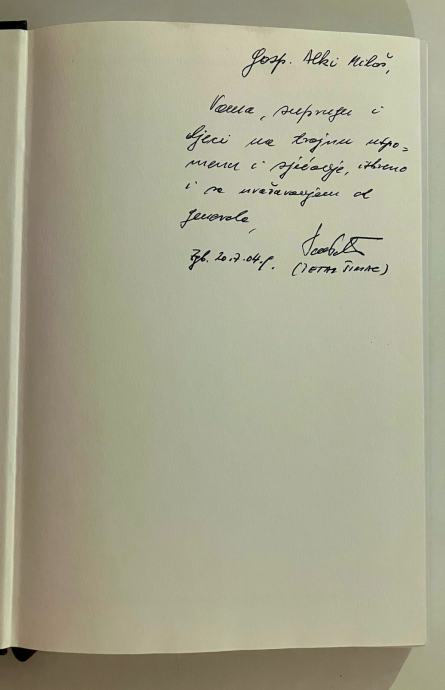 Gosp. Alki Miloš,
Vama, suprugu i
djeci na trajnu uspo=
menu i sjećanje, iskreno
i sa uvažavanjem od
generala,
Zgb. 2017.04.g.
(PETAR ŠIMAC)